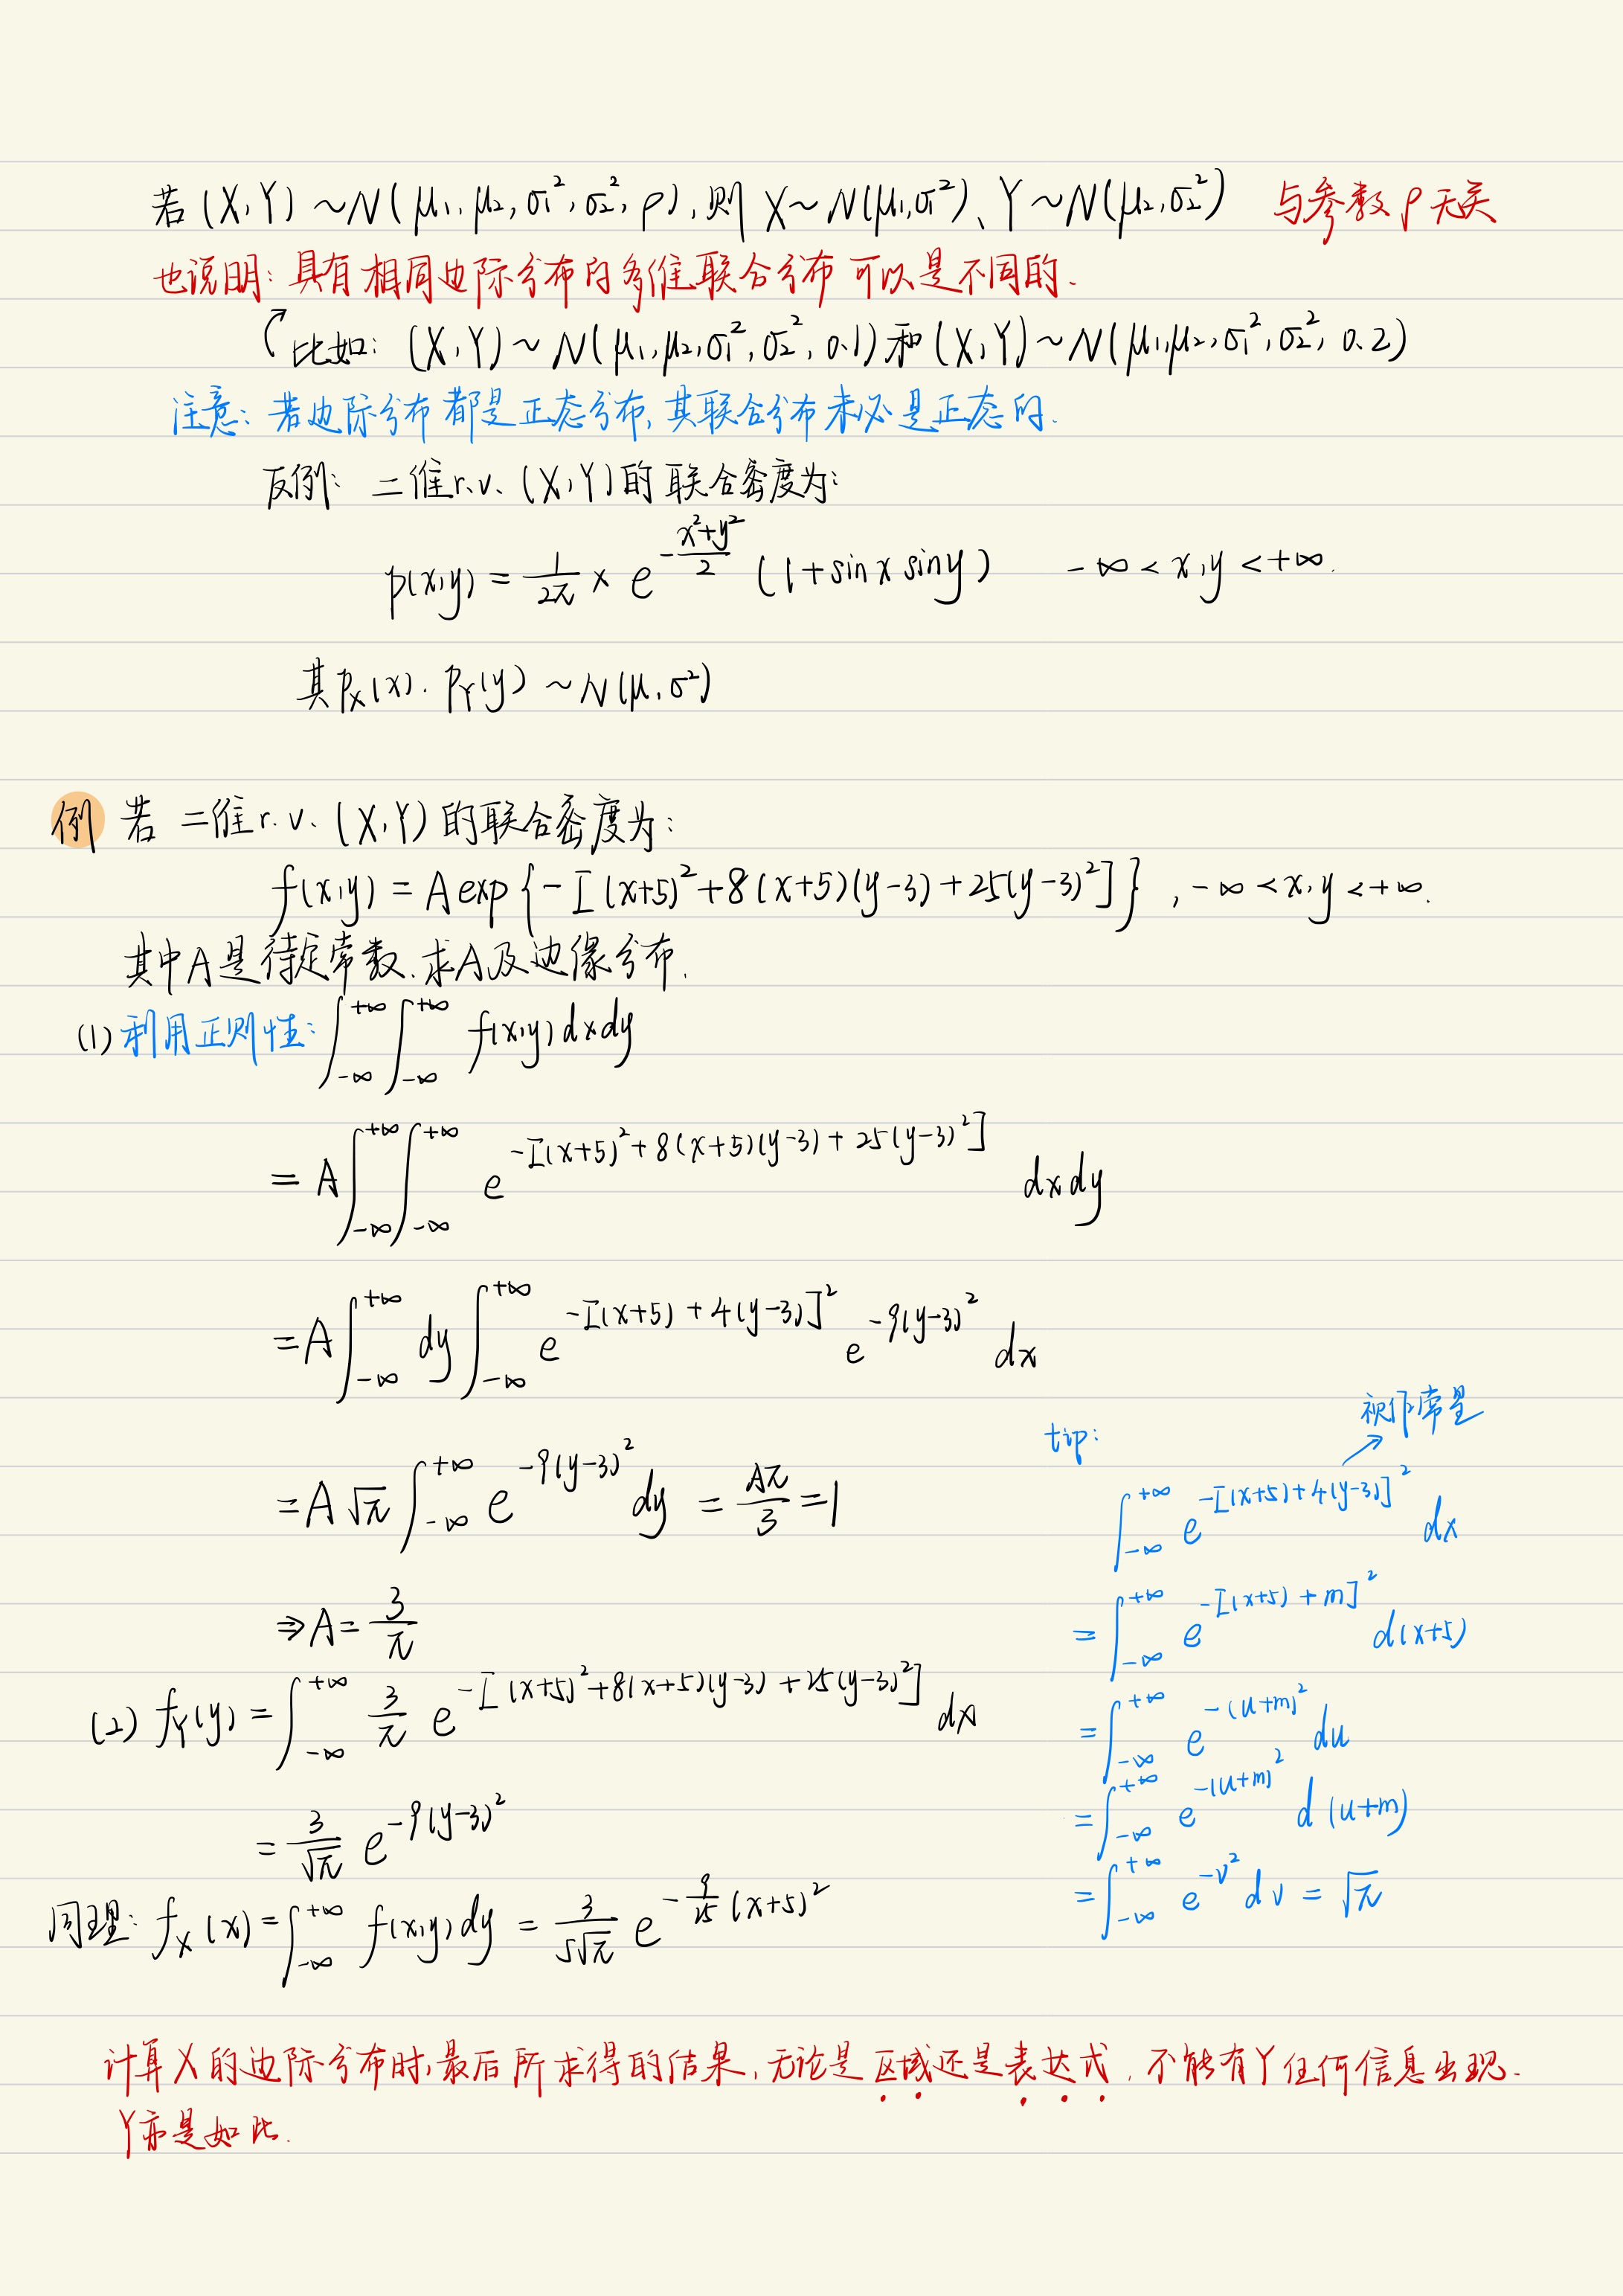 若 (X,Y) ~N( μ₁, μ₂, σ₁², σ₂², ρ), 则 X~N(μ₁,σ₁²)、Y~N(μ₂,σ₂²) 与参数ρ无关
也说明: 具有相同边际分布的多维联合分布可以是不同的.
比如: (X,Y)~N(μ₁,μ₂,σ₁²,σ₂², 0.1)和(X,Y)~N(μ₁,μ₂,σ₁²,σ₂², 0.2)
注意: 若边际分布都是正态分布, 其联合分布未必是正态的.
反例: 二维r.v. (X,Y)的联合密度为:
p(x,y) = 1/(2π) × e^(-(x²+y²)/2) (1+sinx siny) -∞ < x,y < +∞.
其p_X(x). p_Y(y) ~N(μ,σ²)
例 若 二维r.v. (X,Y)的联合密度为:
f(x,y) = A exp{-[(x+5)²+8(x+5)(y-3)+25(y-3)²]} , -∞ <x,y <+∞.
其中A是待定常数.求A及边缘分布.
(1) 利用正则性: ∫_{-∞}^{+∞}∫_{-∞}^{+∞} f(x,y)dxdy
= A∫_{-∞}^{+∞}∫_{-∞}^{+∞} e^(-[(x+5)²+8(x+5)(y-3)+25(y-3)²]) dxdy
=A∫_{-∞}^{+∞} dy∫_{-∞}^{+∞} e^(-[(x+5)+4(y-3)]²) e^(-9(y-3)²) dx
=A√π ∫_{-∞}^{+∞} e^(-9(y-3)²) dy = Aπ/3 =1
⇒A= 3/π
(2) f_Y(y) = ∫_{-∞}^{+∞} 3/π e^(-[(x+5)²+8(x+5)(y-3)+25(y-3)²]) dx
= 3/√π e^(-9(y-3)²)
同理: f_X(x)=∫_{-∞}^{+∞} f(x,y)dy = 3/(5√π) e^(-9/25 (x+5)²)
tip: 视作常量
∫_{-∞}^{+∞} e^(-[(x+5)+4(y-3)]²) dx
= ∫_{-∞}^{+∞} e^(-[(x+5)+m]²) d(x+5)
=∫_{-∞}^{+∞} e^(-(u+m)²) du
=∫_{-∞}^{+∞} e^(-(u+m)²) d(u+m)
=∫_{-∞}^{+∞} e^(-v²) dv = √π
计算X的边际分布时,最后所求得的结果,无论是区域还是表达式, 不能有Y任何信息出现.
Y亦是如此.